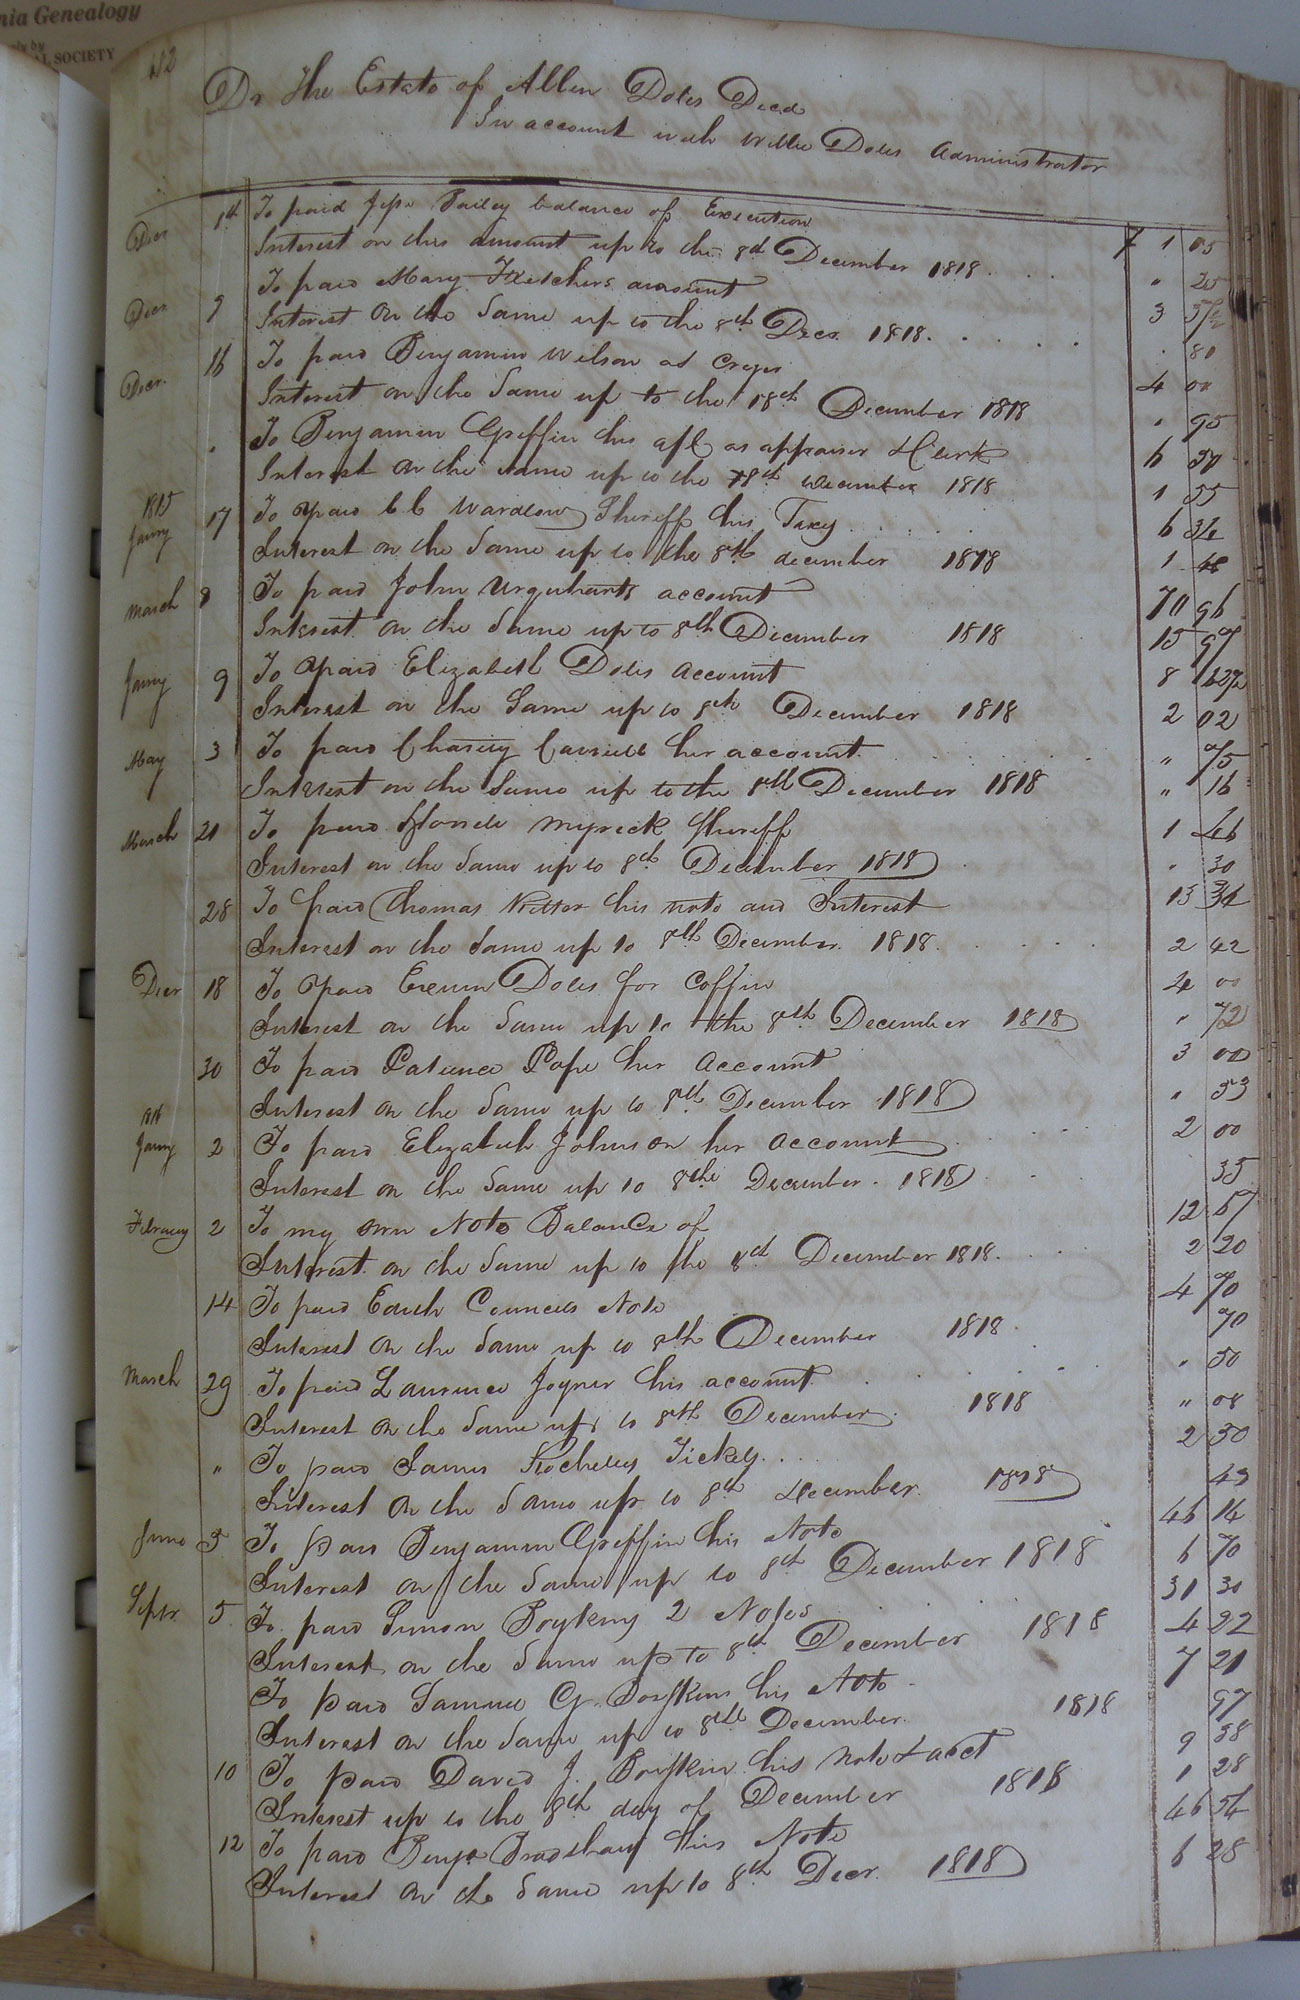 nia Genealogy
by
AL SOCIETY
182
Dr The Estate of Allen Doles Decd
In account with Willie Doles Administrator
Decr 1st To paid Jesse Bailey balance of Execution 1 05
Interest on this amount up to the 8th December 1818 " 25
Decr 9 To paid Mary Fletchers amount 3 57½
Interest on the Same up to the 8th Decr 1818 . 80
Decr. 16 To paid Benjamin Wilson as Cryer 4 00
Interest on the Same up to the 18th December 1818 " 95
" To Benjamin Griffin his a/c as appraiser & Clerk 6 50
Interest on the same up to the 18th December 1818 1 55
1815
Janry 17 To paid C C Wardlow Sheriff his Taxy 6 34
Interest on the Same up to the 8th december 1818 1 48
March 8 To paid John Urquharts account 70 96
Interest on the Same up to 8th December 1818 15 97
Janry 9 To paid Elizabeth Doles account 8 62½
Interest on the Same up to 8th December 1818 2 02
May 3 To paid Charity her account " 75
Interest on the Same up to the 8th December 1818 " 16
March 21 To paid Myrick Sheriff 1 46
Interest on the Same up to 8th December 1818 " 30
28 To paid Thomas his note and Interest 13 34
Interest on the Same up to 8th December 1818 2 42
Decr 18 To paid Exum Doles for Coffin 4 00
Interest on the Same up to the 8th December 1818 " 72
30 To paid Patience Pope her Account 3 00
Interest on the Same up to 8th December 1818 " 53
1816
Janry 2 To paid Elizabeth Johnson her account 2 00
Interest on the Same up to 8the December. 1818 35
Febrary 2 To my own Note Balance of 12 57
Interest on the Same up to the 8d December 1818. 2 20
14 To paid Edith Councils Note 4 70
Interest on the Same up to 8th December 1818 70
March 29 To paid Laurence Joyner his account " 50
Interest on the Same up to 8th December 1818 " 08
" To paid James Rochelles Ticket 2 50
Interest on the Same up to 8th December 1818 43
June 5 To paid Benjamin Griffin his Note 46 14
Interest on the Same up to 8th December 1818 6 70
Septr 5 To paid Simon Boykins 2 Notes 31 30
Interest on the Same up to 8th December 1818 4 22
To paid Samuel G. Boykins his Note 7 21
Interest on the Same up to 8th December 1818 97
10 To paid David J. Boykin his Note & acct 9 58
Interest up to the 8th day of December 1818 1 28
12 To paid Benja Bradshaw his Note 46 54
Interest on the Same up to 8th Decr 1818 6 28